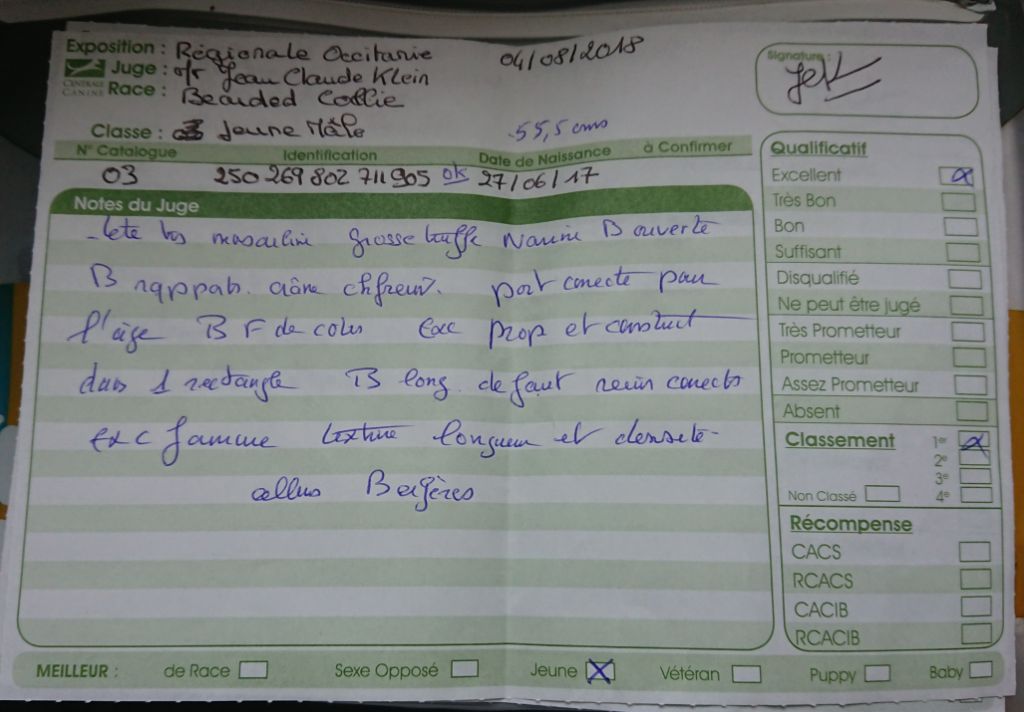 Exposition : Régionale Occitanie 04/08/2018
Juge : Jean Claude Klein
CENTRALE CANINE
Race : Bearded Collie
Signature :
Classe : Jeune Mâle 55,5 cms
N° Catalogue Identification Date de Naissance à Confirmer
03 250 269 802 711 905 ok 27/06/17
Notes du Juge
masculine grosse truffe Narine B ouverte
B port correcte pour
l'âge B F de cotes exc prop et construct
dans 1 rectangle B long. de fouet
exc texture longueur et densité
Bergères
Qualificatif
Excellent
Très Bon
Bon
Suffisant
Disqualifié
Ne peut être jugé
Très Prometteur
Prometteur
Assez Prometteur
Absent
Classement 1er
2e
3e
Non Classé 4e
Récompense
CACS
RCACS
CACIB
RCACIB
MEILLEUR : de Race Sexe Opposé Jeune X Vétéran Puppy Baby